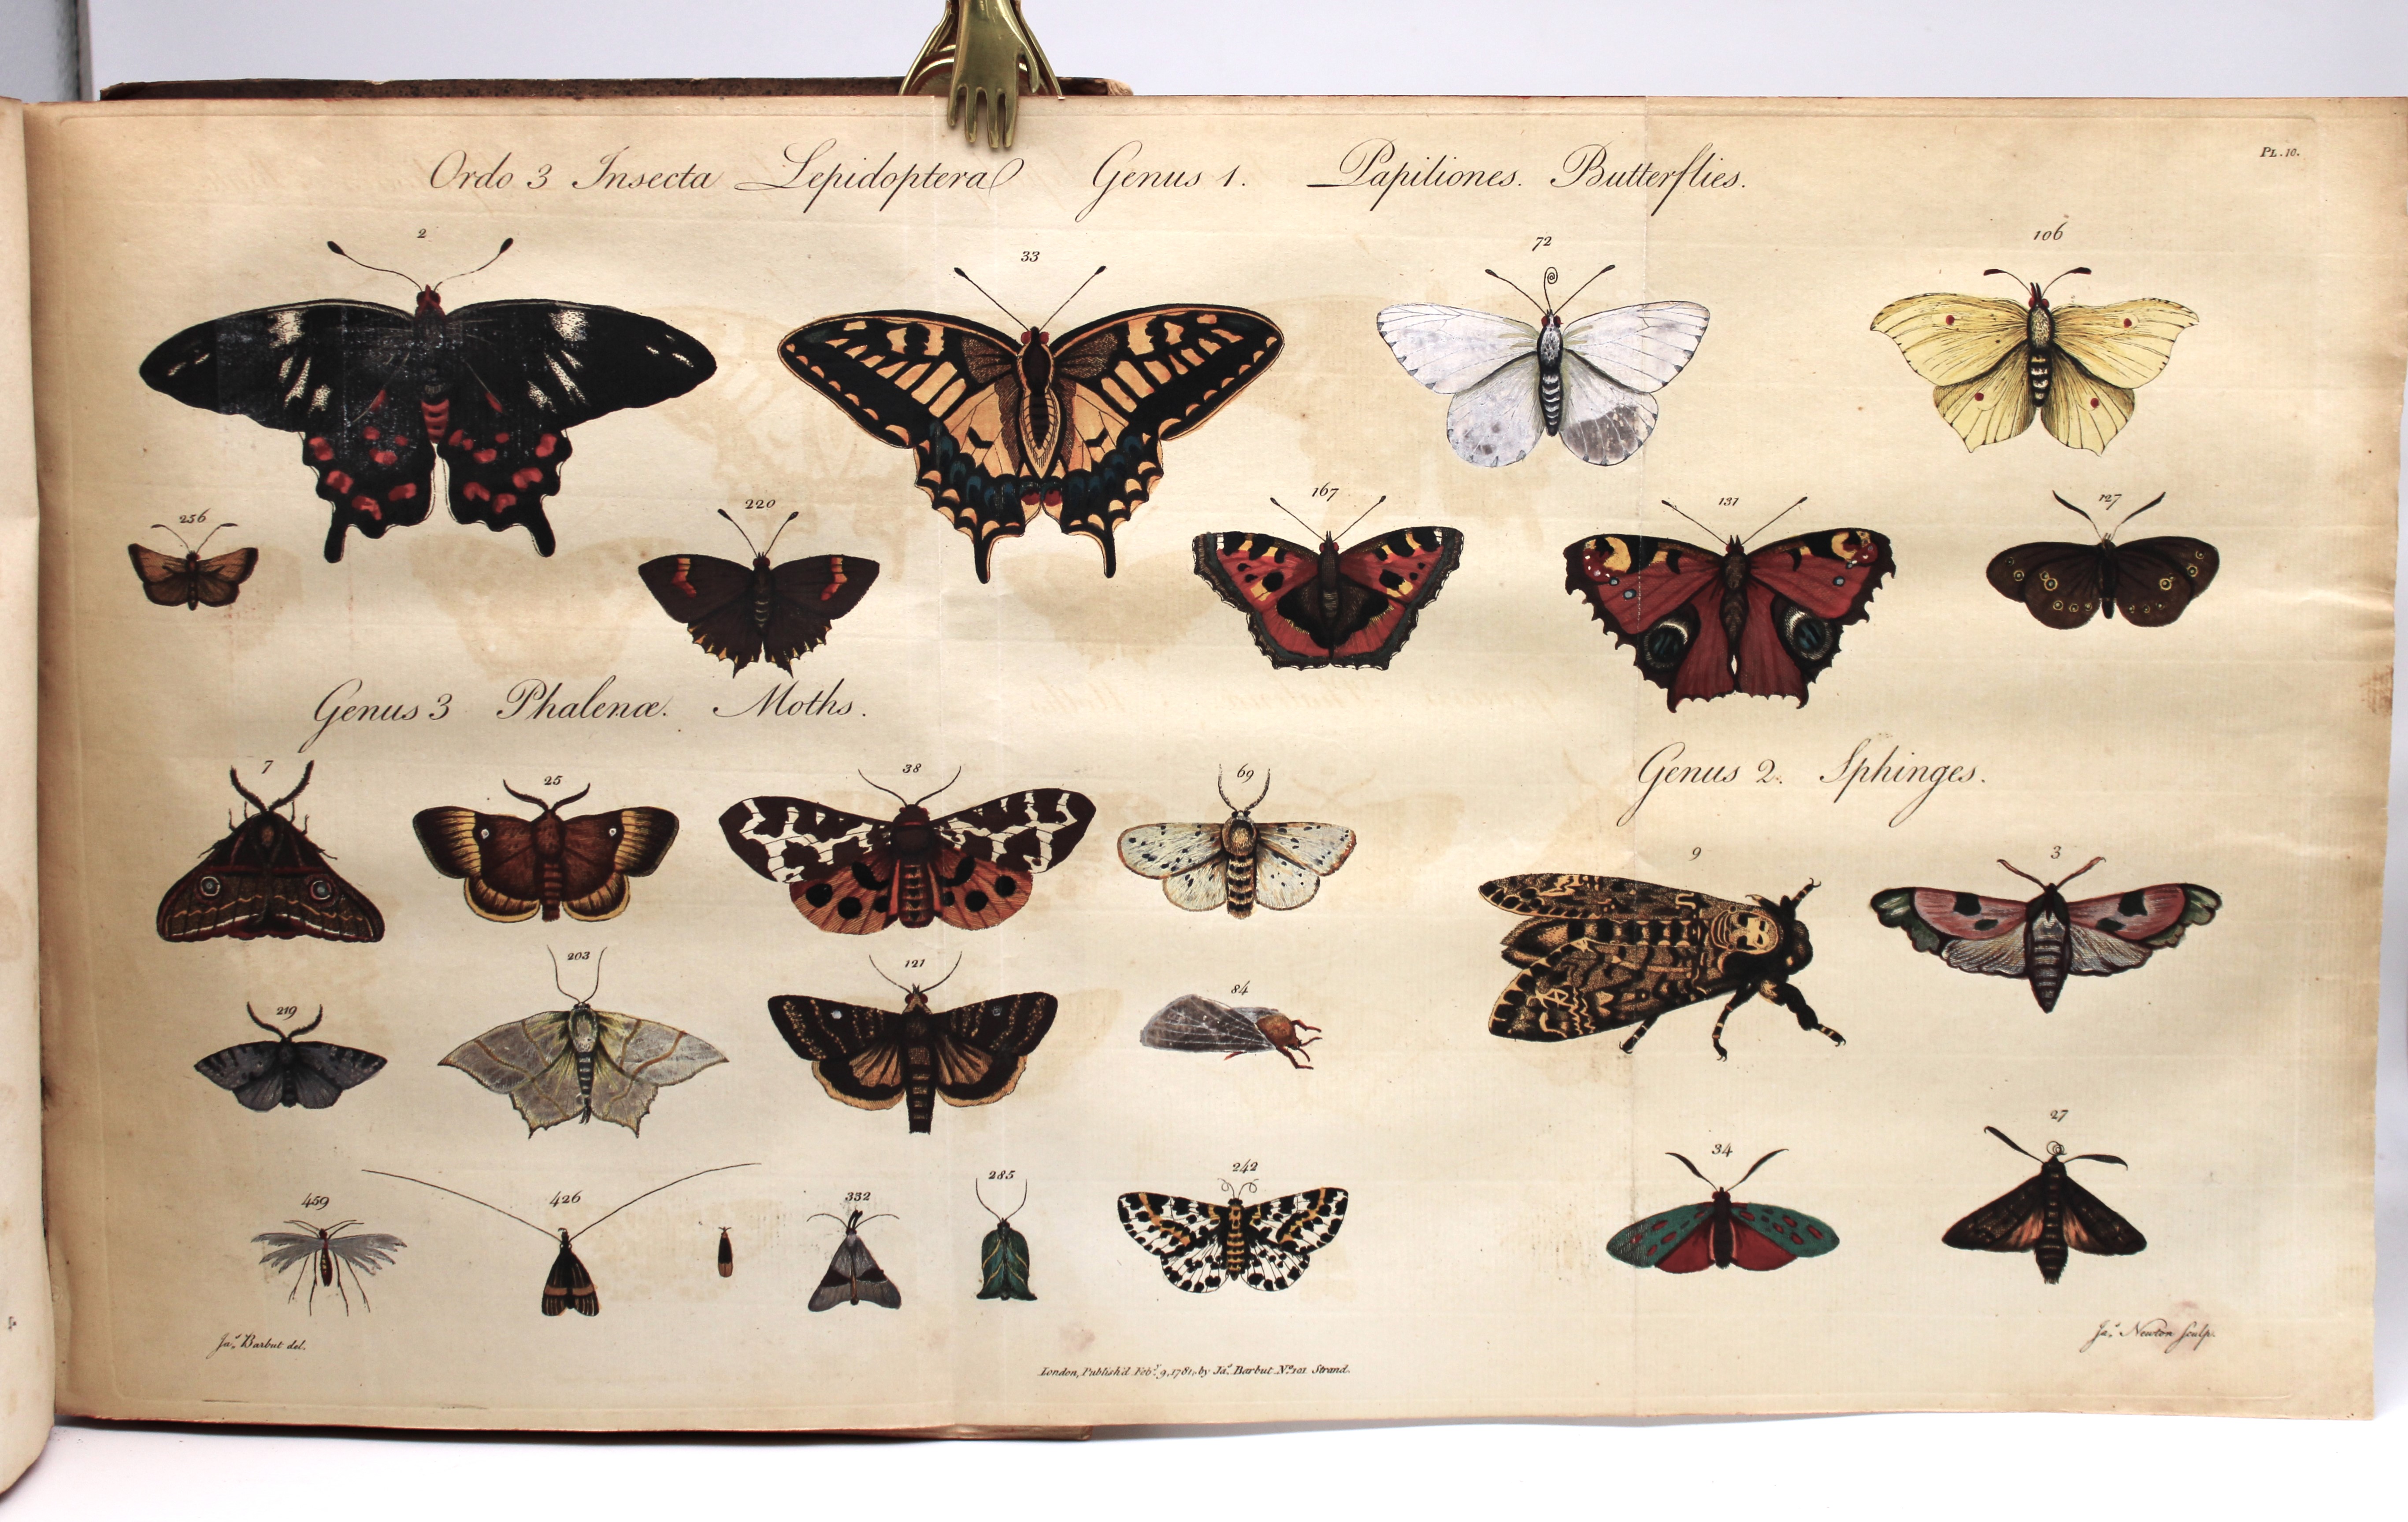 Pl. 10.
Ordo 3 Insecta Lepidoptera Genus 1. Papiliones. Butterflies.
2
33
72
106
256
220
167
131
127
Genus 3 Phalenæ. Moths.
Genus 2. Sphinges.
7
25
38
69
9
3
219
203
121
84
459
426
332
285
242
34
27
Jas. Barbut del.
Jas. Newton Sculp.
London, Publish'd Feby. 9, 1781, by Jas. Barbut No. 101 Strand.